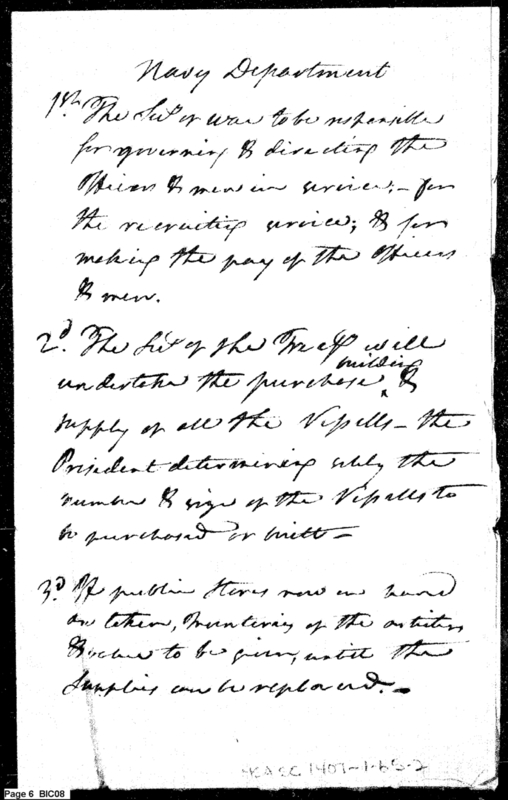 Navy Department
1st. The Secy of War to be responsible
for governing & directing the
Officers & men in service; – for
the recruiting service; & for
making the pay of the Officers
& men.
2d. The Secy of the Treasy will
undertake the purchase, building &
supply of all the Vessells – the
President determining solely the
number & size of the Vessells to
be purchased or built –
3d. If public Stores now on hand
are taken, Inventories of the articles
& value to be given, until the
Supplies can be replaced. –
KASC 1407-1-65-2
Page 6 BIC08